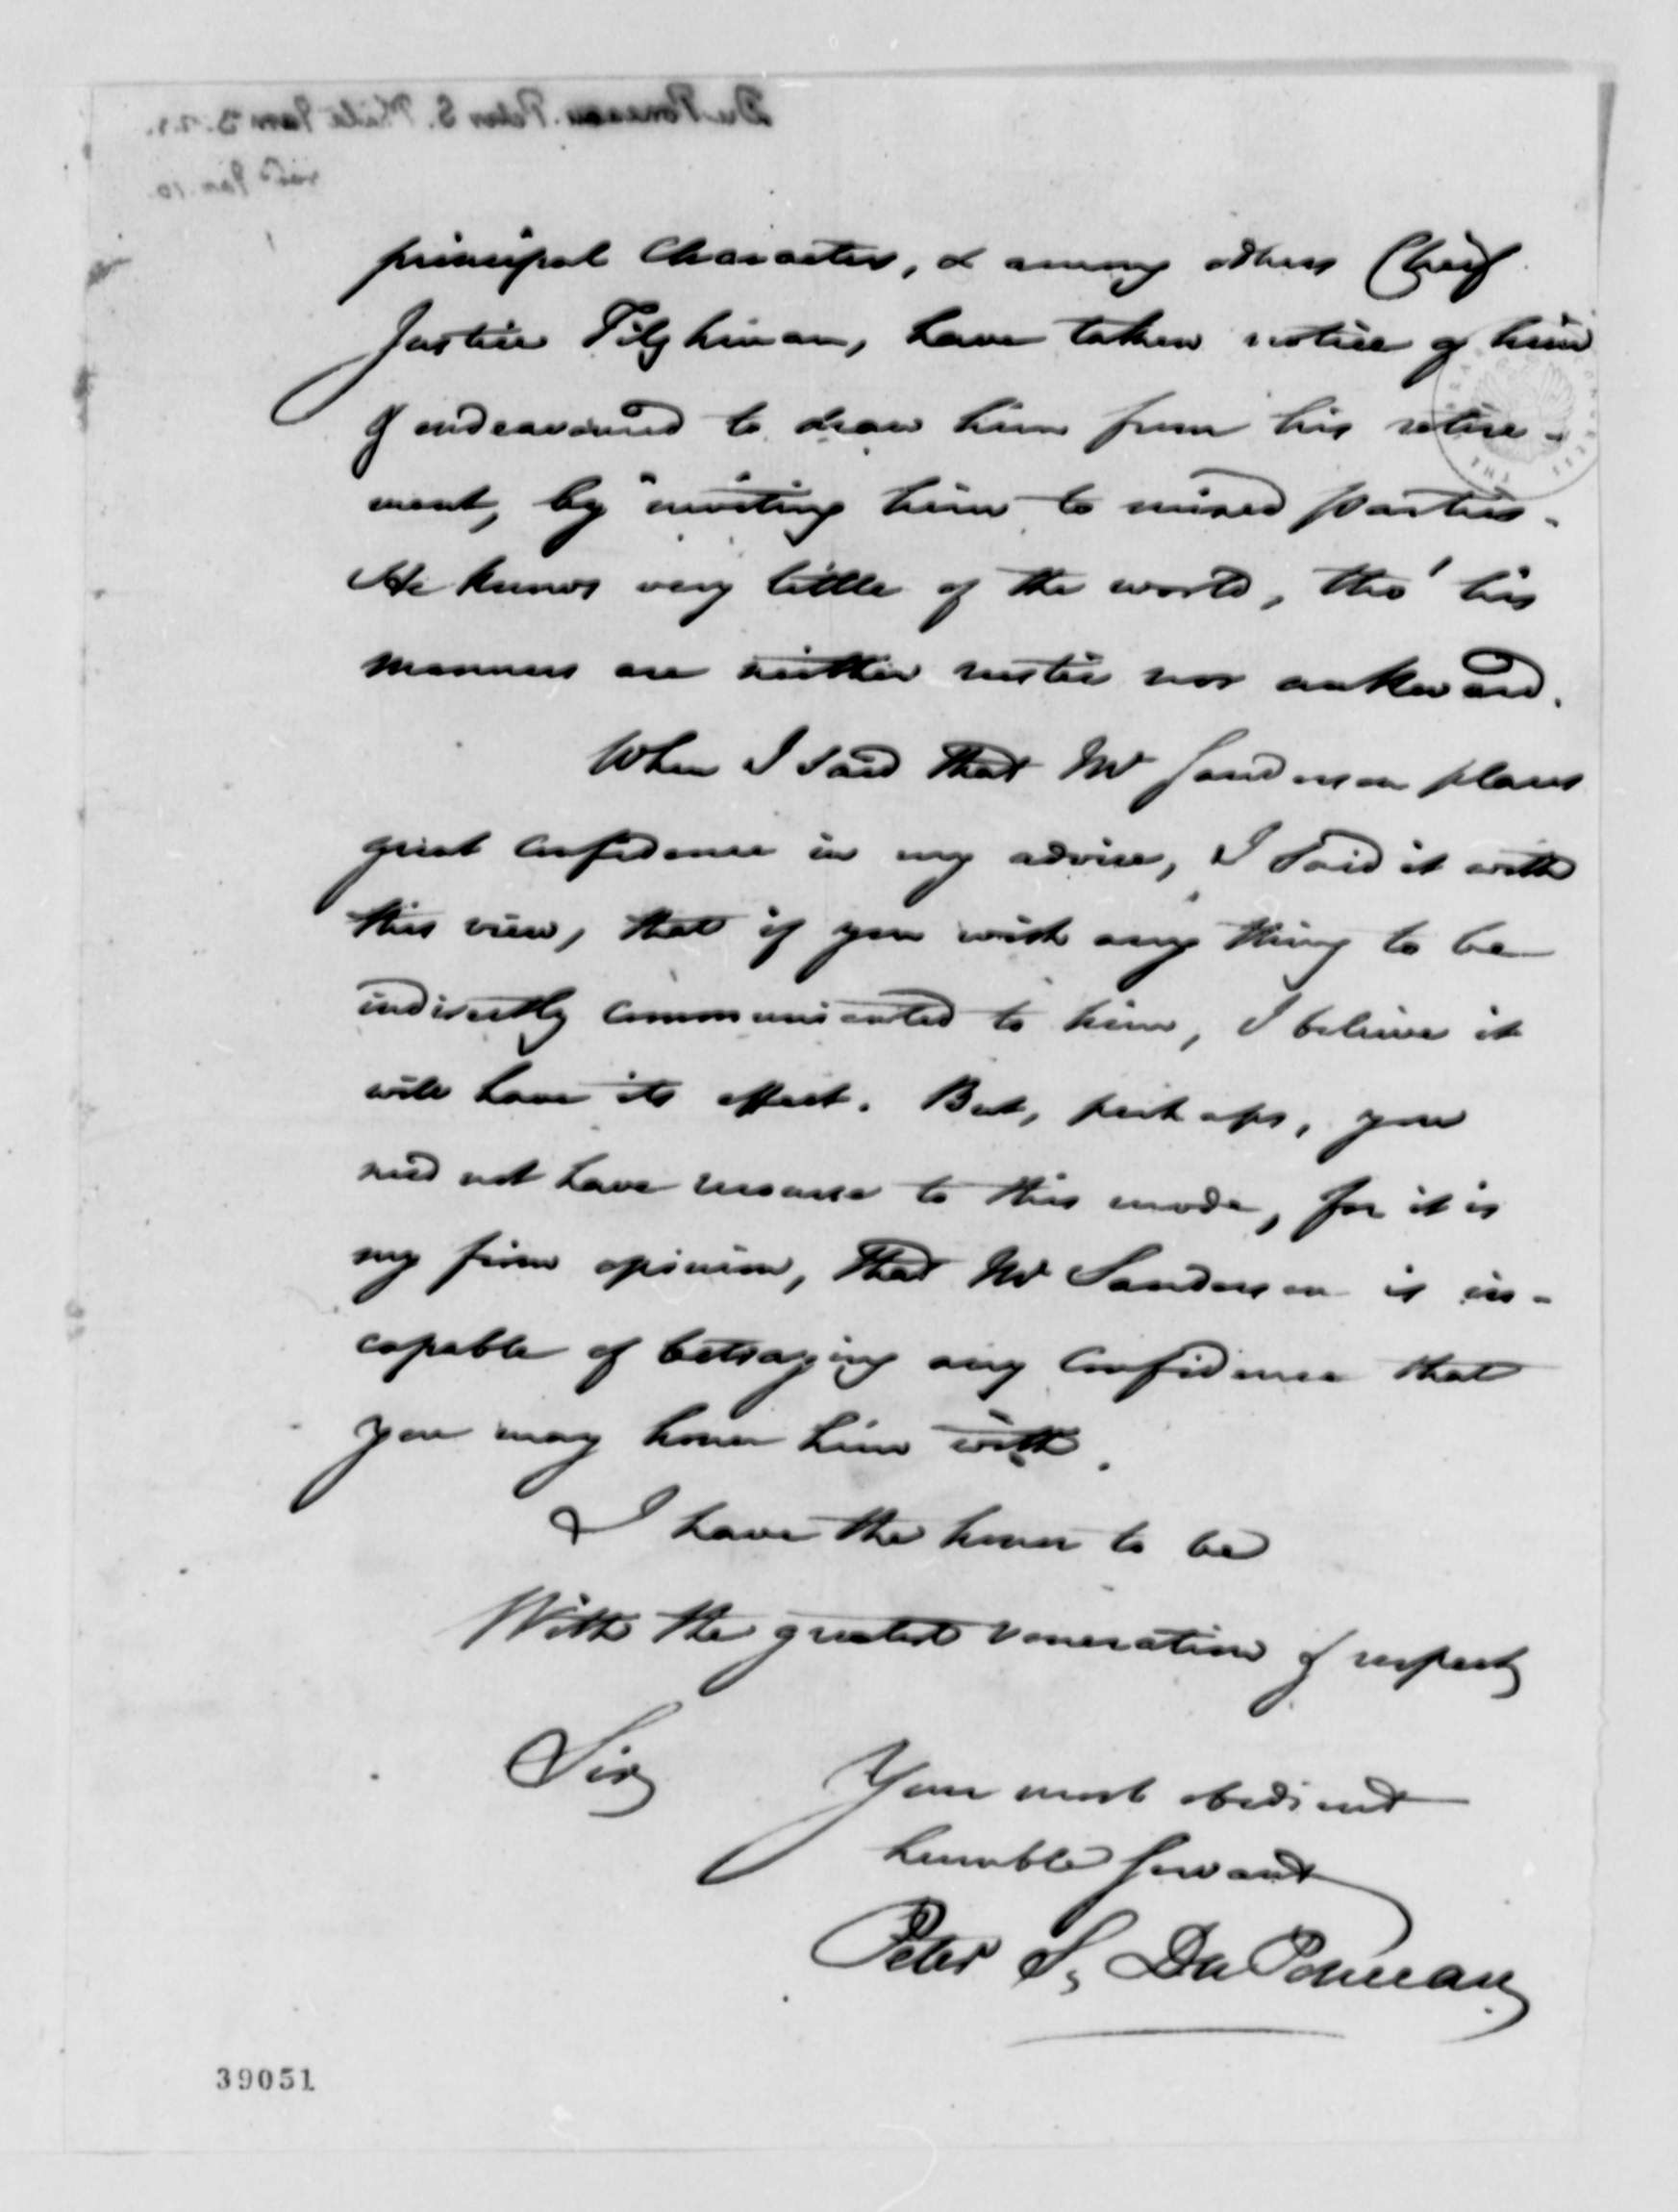 principal Characters, & among others Chief
Justice Tilghman, have taken notice of him
& endeavoured to draw him from his retire-
ment, by inviting him to mixed parties.
He knows very little of the world, tho' his
manners are neither rustic nor awkward.
When I said that Mr Sanderson places
great confidence in my advice, I said it with
this view, that if you wish any thing to be
indirectly communicated to him, I believe it
will have its effect. But, perhaps, you
need not have recourse to this mode, for it is
my firm opinion, that Mr Sanderson is in-
capable of betraying any Confidence that
you may honor him with.
I have the honor to be
With the greatest veneration & respect
Sir
Your most obedient
humble Servant
Peter S. Du Ponceau
39051